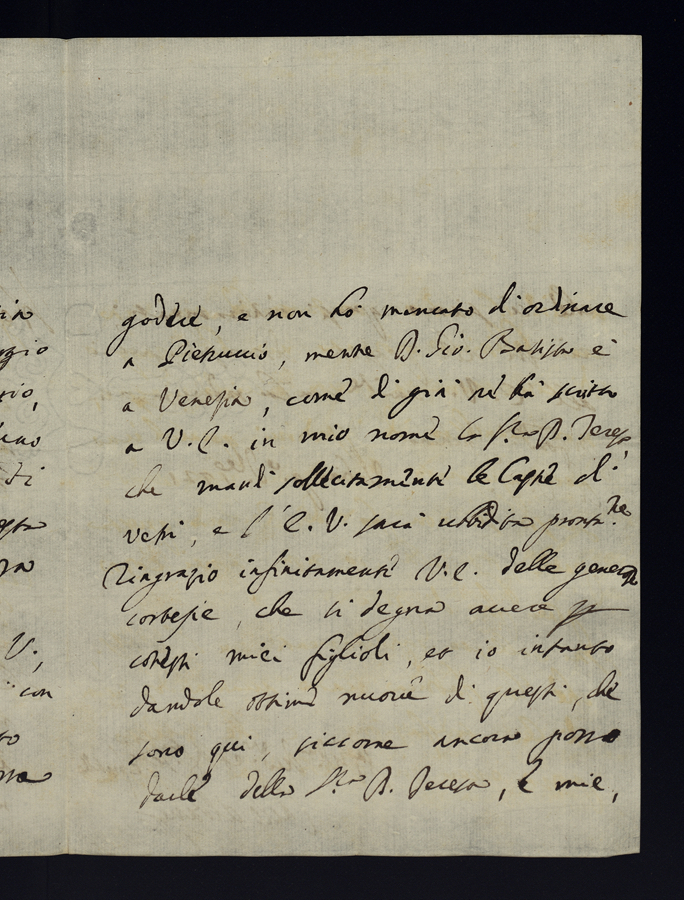 godere, e non hò mancato d'ordinare
a Pietruccio, mentre D. Gio. Batista è
a Venezia, come di già nè hà scritto
a V. E. in mio nome la Sra D. Teresa
che mandi sollecitamente le Casse di
vetri, e l'E. V. sarà ubbidita prontte
Ringrazio infinitamente V. E. delle generose
cortesie, che si degna avere p
cotesti miei figlioli, et io intanto
dandole ottime nuove di questi, che
sono qui, siccome ancora posso
darle della Sra D. Teresa, e mie,
rio,
V.,
con